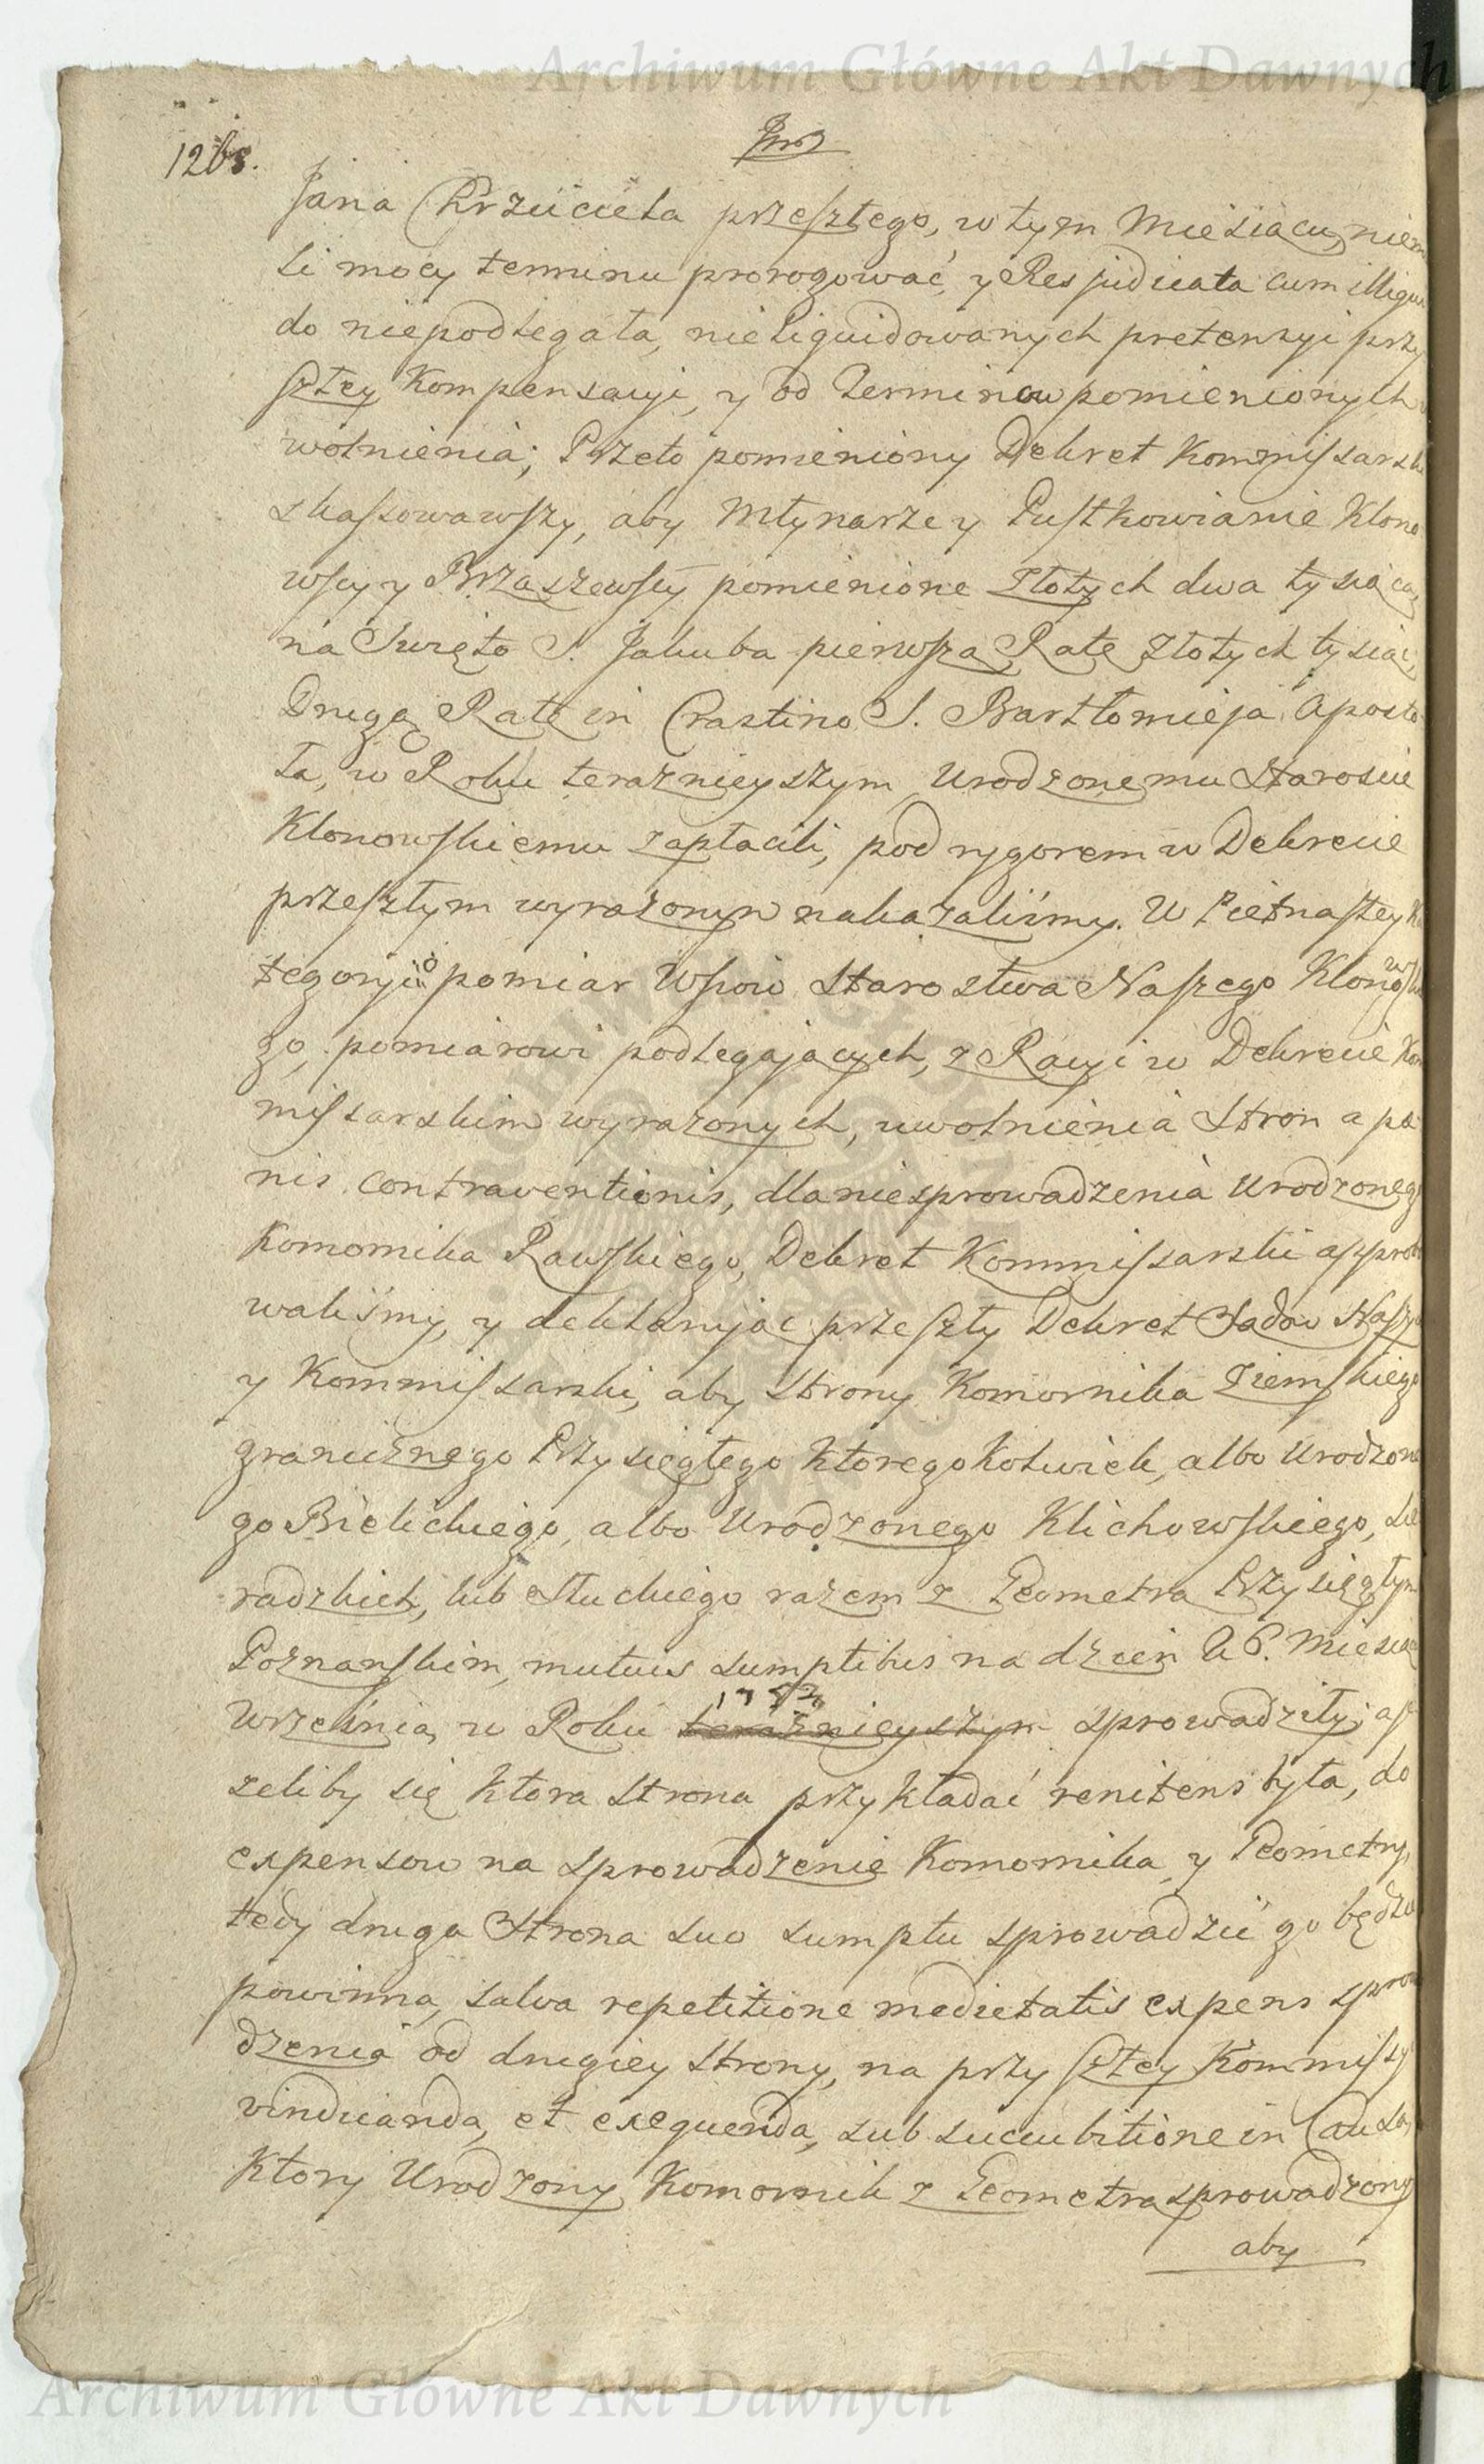 Archiwum Główne Akt Dawnych
126s.
Jana Chrzciciela przeszłego, w tym Miesiącu, niem
li mocy terminu prorogować, y Res judicata cum illiqui
do niepodlegała, nieliquidowanych pretensyi przy
szłey Kompensacyi, y od Terminow pomienionych
wolnienia; Przeto pomieniony Dekret Kommissarsk
skassowawszy, aby Młynarze y Pustkowianie Klono
wscy y Brzaszewscy pomienione Złotych dwa tysiąca,
na Swięto S. Jakuba pierwszą Ratę Złotych tysiąc,
Drugą Ratę in Crastino S. Bartłomieja Aposto
ła, w Roku teraznieyszym Urodzonemu Staroscie
Klonowskiemu zapłacili, pod rygorem w Dekrecie
przeszłym wyrażonym nakazaliśmy. W Piętnastey Ka
tegoryi o pomiar Wsiow Starostwa Naszego Klonowskie
go, pomiarowi podlegających, z Racyi w Dekrecie Kom
missarskim wyrażonych, uwolnienia Stron a pæ
nis contraventionis, dla niesprowadzenia Urodzonego
Komornika Rawskiego, Dekret Kommissarski approbo
waliśmy, y deklarując przeszły Dekret Sądow Naszych
y Kommissarski, aby Strony Komornika Ziemskiego
granicznego Przysięgłego ktorego kolwiek, albo Urodzone
go Bielickiego, albo Urodzonego Klichowskiego, Sie
radzkich, lub Stuckiego razem z Geometrą Przysięgłym
Poznanskim, mutuis sumptibus na dzień 26. Miesiąca
Września, w Roku teraznieyszym 1782 sprowadziły; a je
zeliby się ktora Strona przykładać renitens była, do
expensow na sprowadzenie Komornika y Geometry,
tedy druga Strona suo sumptu sprowadzić go będzie
powinna, salva repetitione medietatis expens sprowa
dzenia od drugiey Strony, na przyszłey Kommissyi
vindicanda, et exequenda, sub succubitione in Causa,
Ktory Urodzony Komornik z Geometrą sprowadzony
aby
Archiwum Główne Akt Dawnych